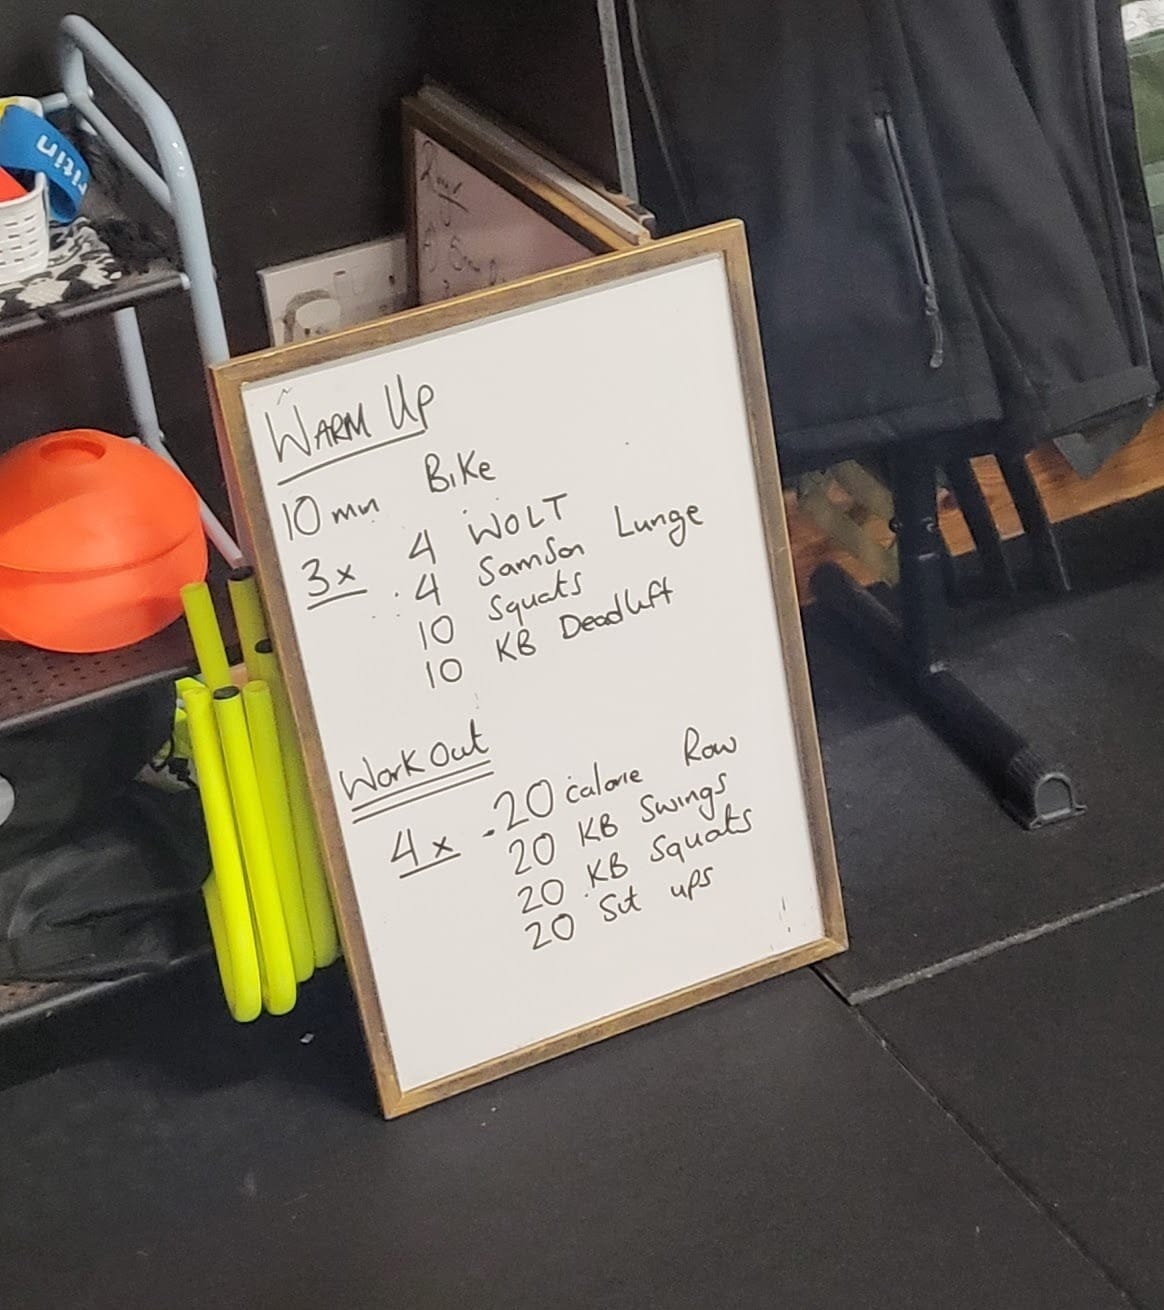 WARM UP
10 min Bike
3x 4 WOLT
4 Samson Lunge
10 Squats
10 KB Deadlift
Work Out
4x - 20 calorie Row
20 KB Swings
20 KB Squats
20 Sit ups
ritin